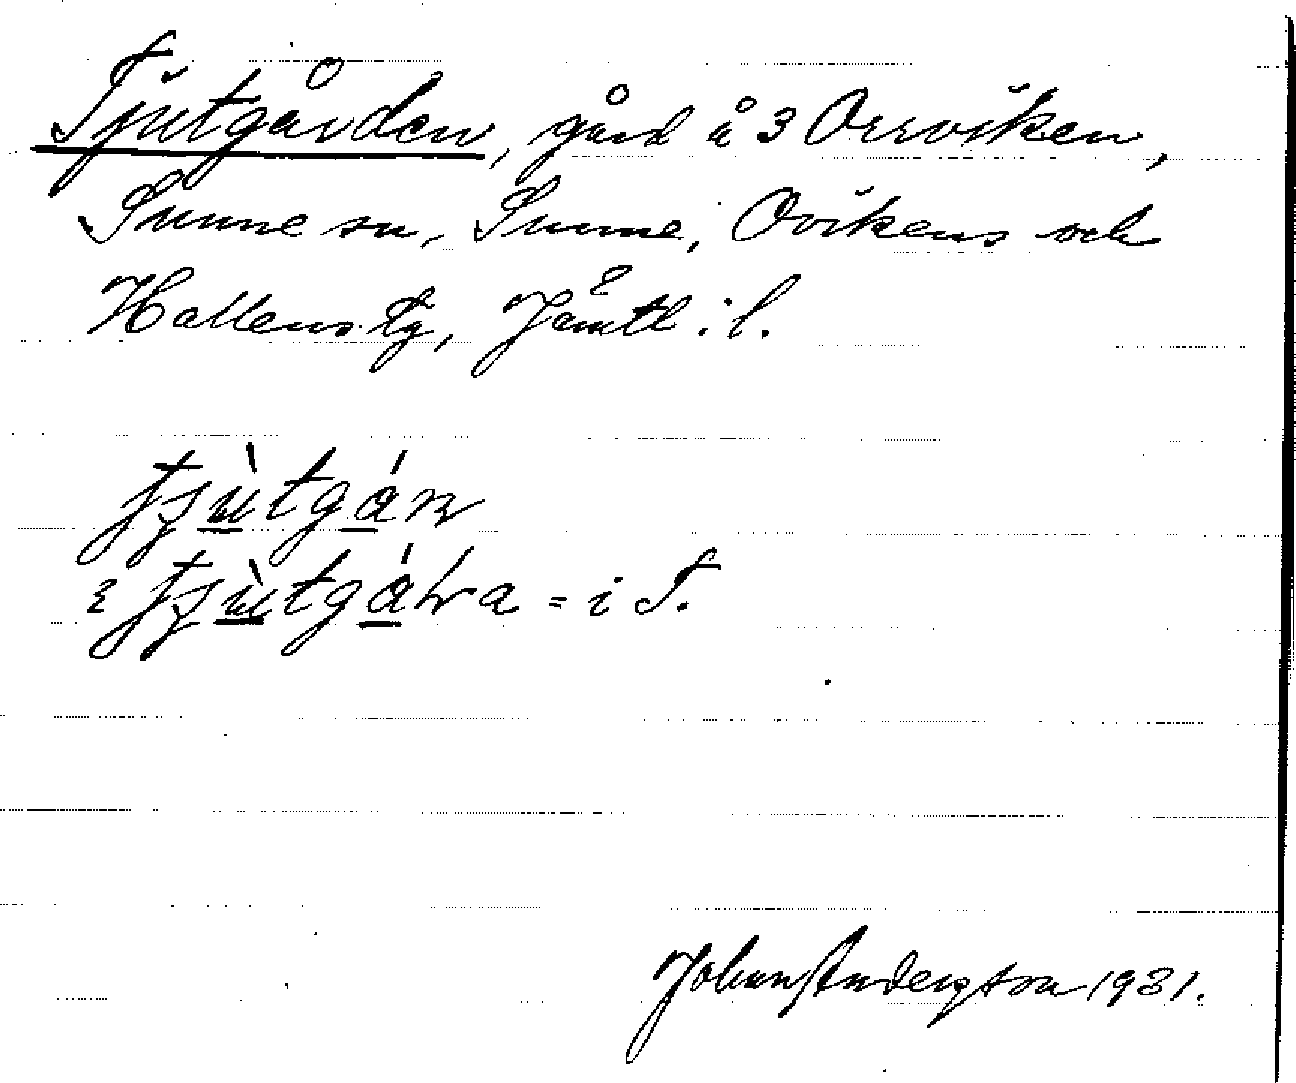 Tjutgården, gård å 3 Orrviken,
Sunne sn, Sunne, Ovikens och
Hallens tg, Jämtl. l.
tjùtgán
i tjùtgáṛa = i T.
Johan Andersson 1931.